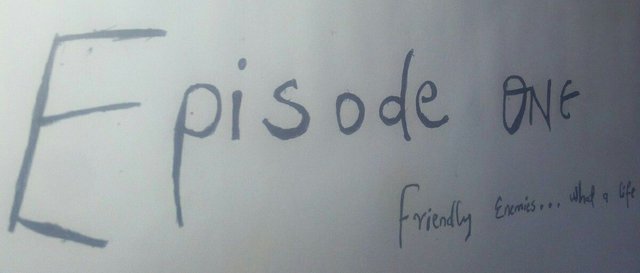 Episode ONE
Friendly Enemies... what a life